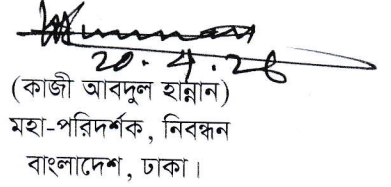 20.4.26
(কাজী আবদুল হান্নান)
মহা-পরিদর্শক, নিবন্ধন
বাংলাদেশ, ঢাকা।